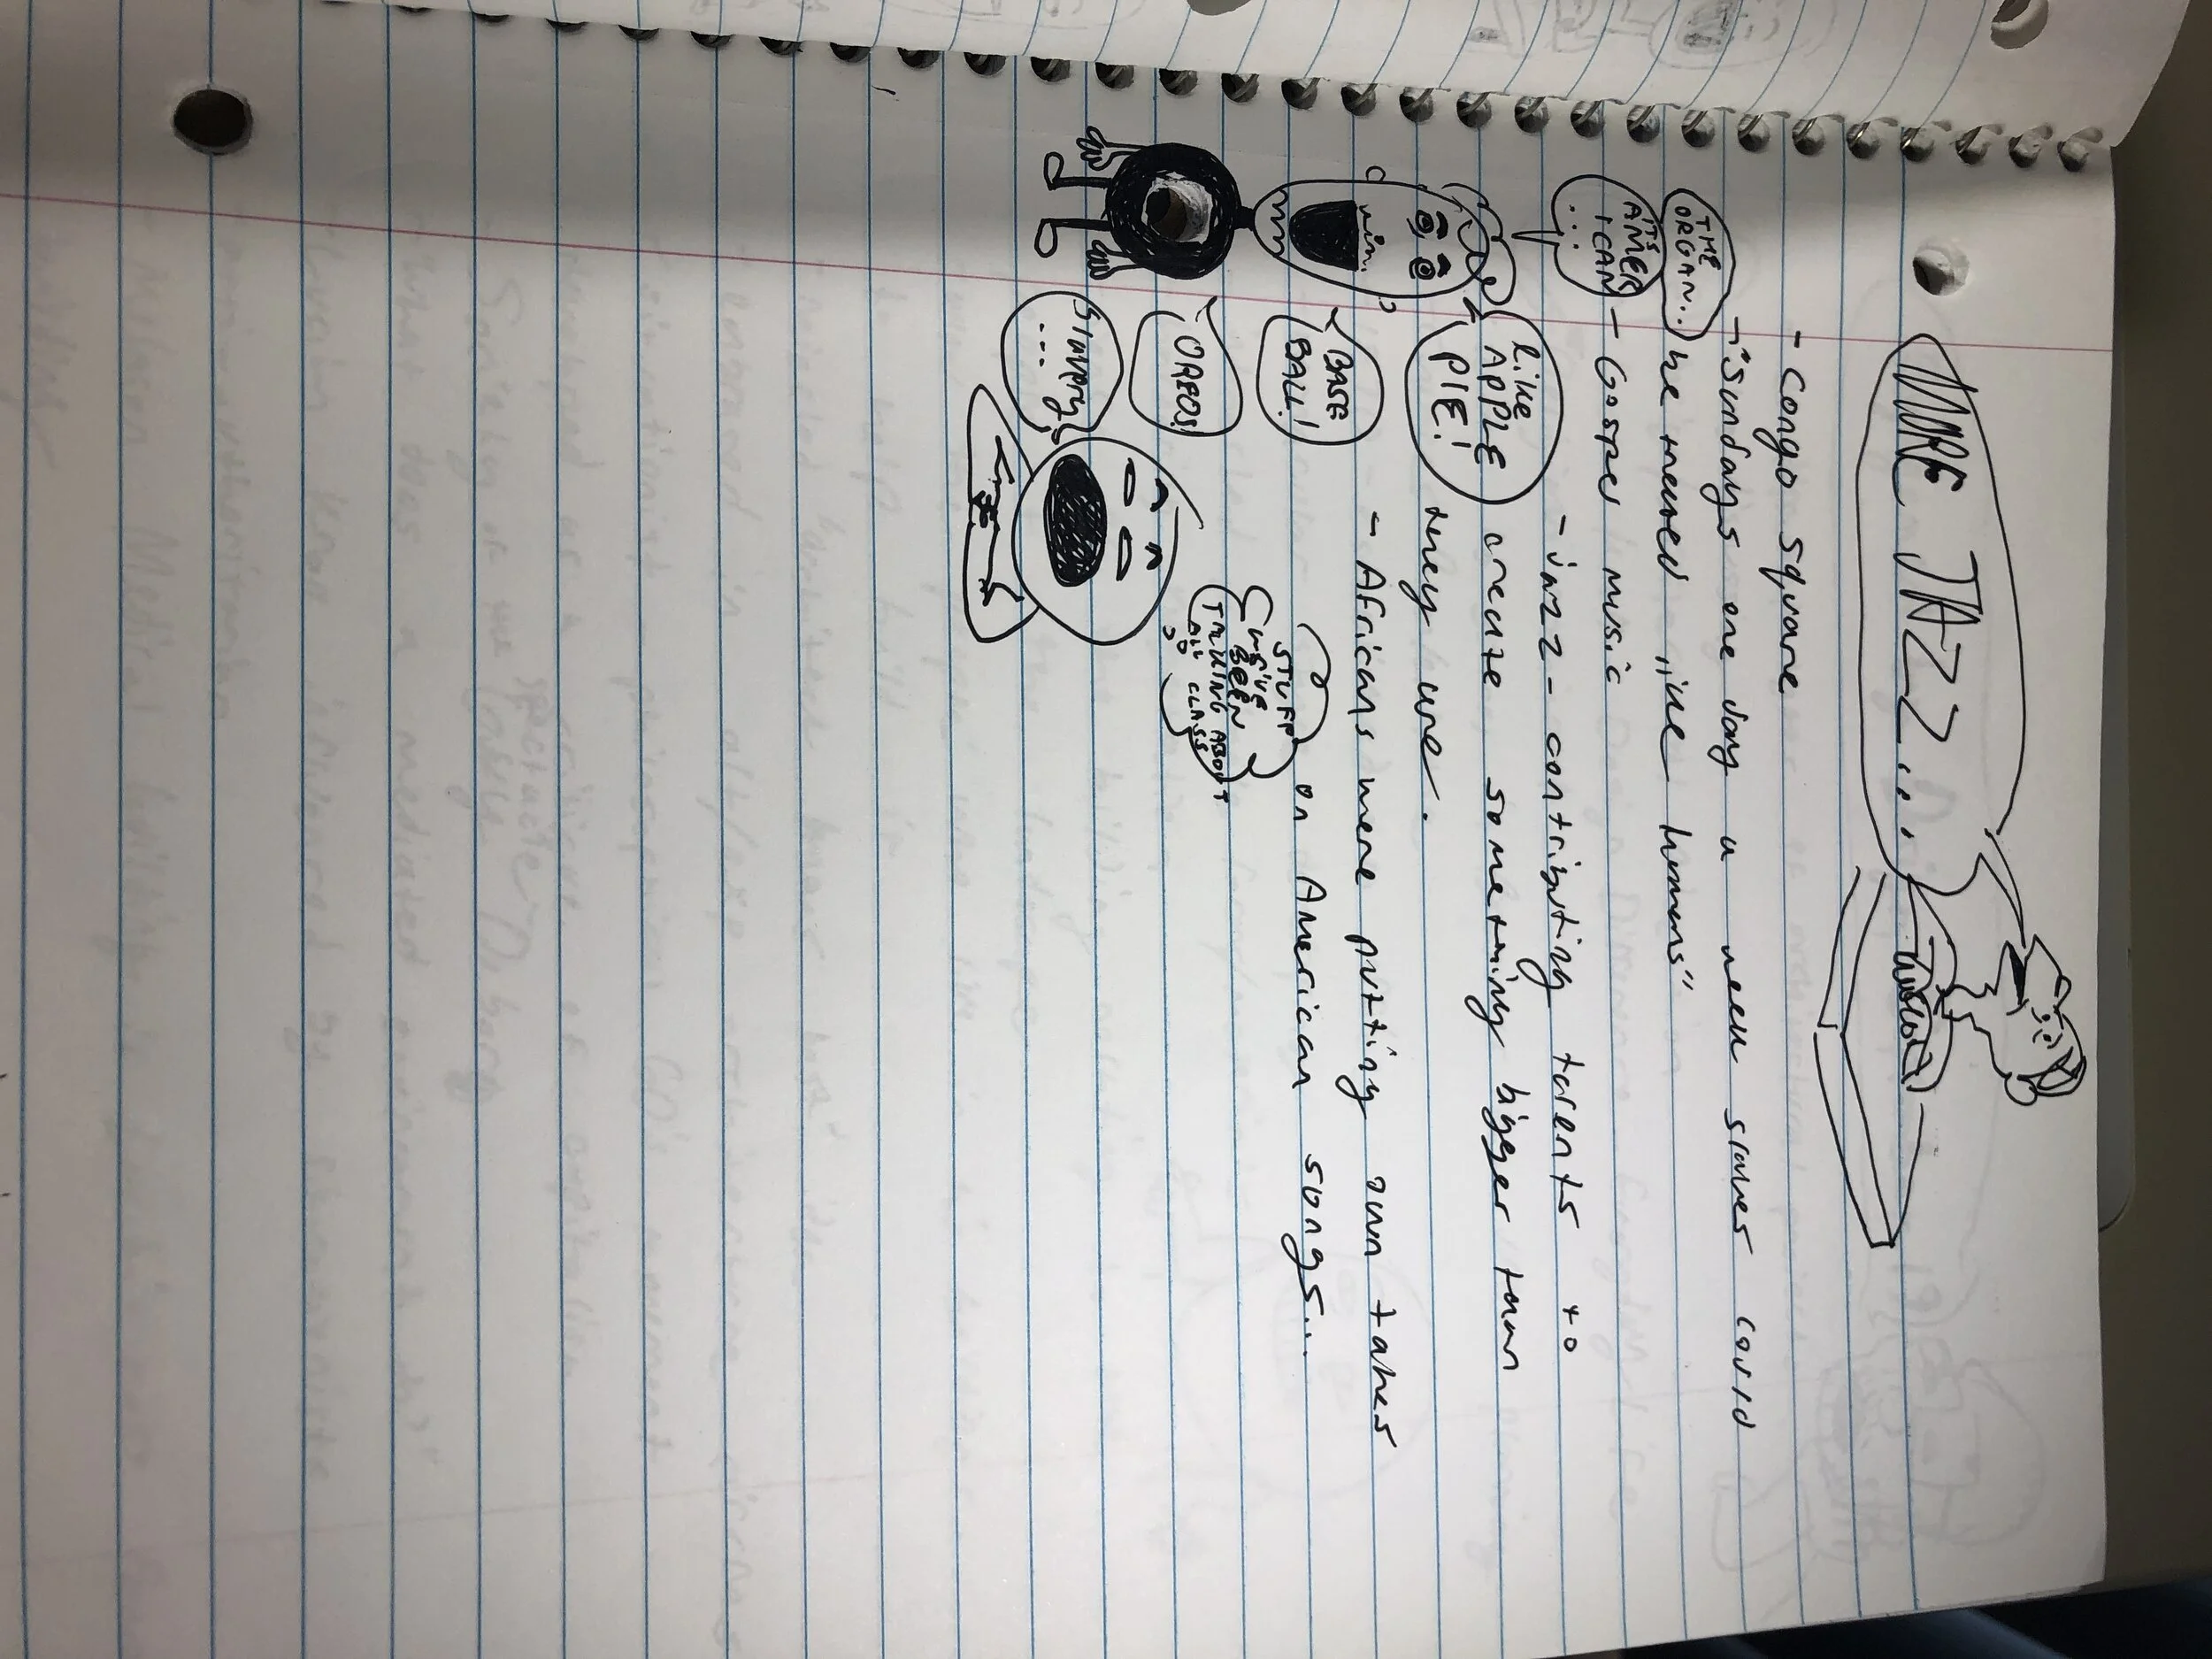 MORE JAZZ...
- Congo square
- "Sundays one day a week slaves could
be treated like humans"
- Gospel music
- jazz - contributing talents to
create something bigger than
they are.
- Africans were putting own takes
on American songs...
THE
ORGAN...
IT'S
AMER
ICAN
...
like
APPLE
PIE!
BASE
BALL!
OREOS!
Simply
....
STUFF
WE'VE
BEEN
TALKING ABOUT
ALL CLASS